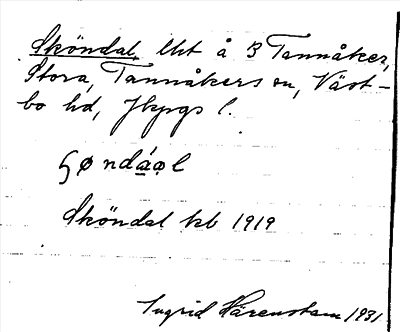 Sköndal, lht å 3 Tannåker,
Stora, Tannåkers sn, Väst-
bo hd, Jkpgs l.
ʂøndáo̯l
Sköndal kb 1919
Ingrid Härenstam 1931